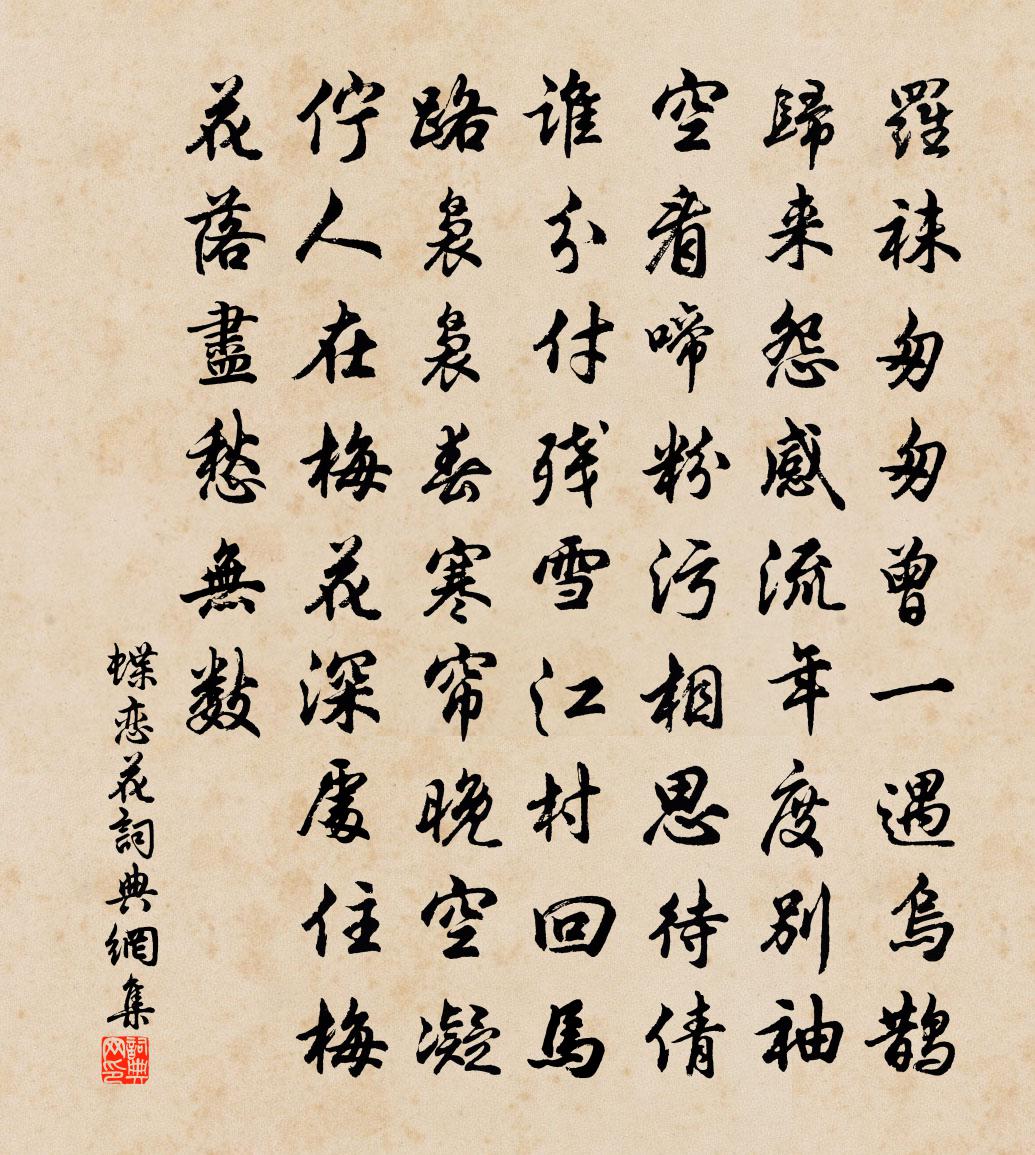 羅袜匆匆曾一遇烏鹊
歸来怨感流年度别袖
空看啼粉污相思待倩
谁分付残雪江村回馬
路袅袅春寒帘晚空凝
佇人在梅花深處住梅
花落盡愁無数
蝶恋花詞典網集
詞典网印